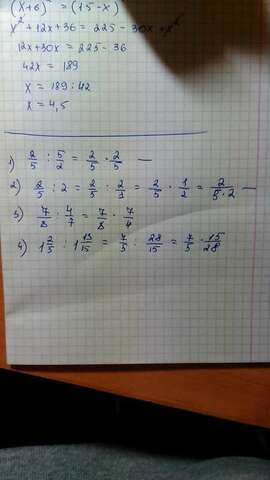 (x+6)² = (15-x)²
x² + 12x + 36 = 225 - 30x + x²
12x + 30x = 225 - 36
42x = 189
x = 189 : 42
x = 4,5
1) 2/5 : 5/2 = 2/5 · 2/5 —
2) 2/5 : 2 = 2/5 : 2/1 = 2/5 · 1/2 = 2/(5·2) —
3) 7/8 : 4/7 = 7/8 · 7/4
4) 1 2/5 : 1 13/15 = 7/5 : 28/15 = 7/5 · 15/28